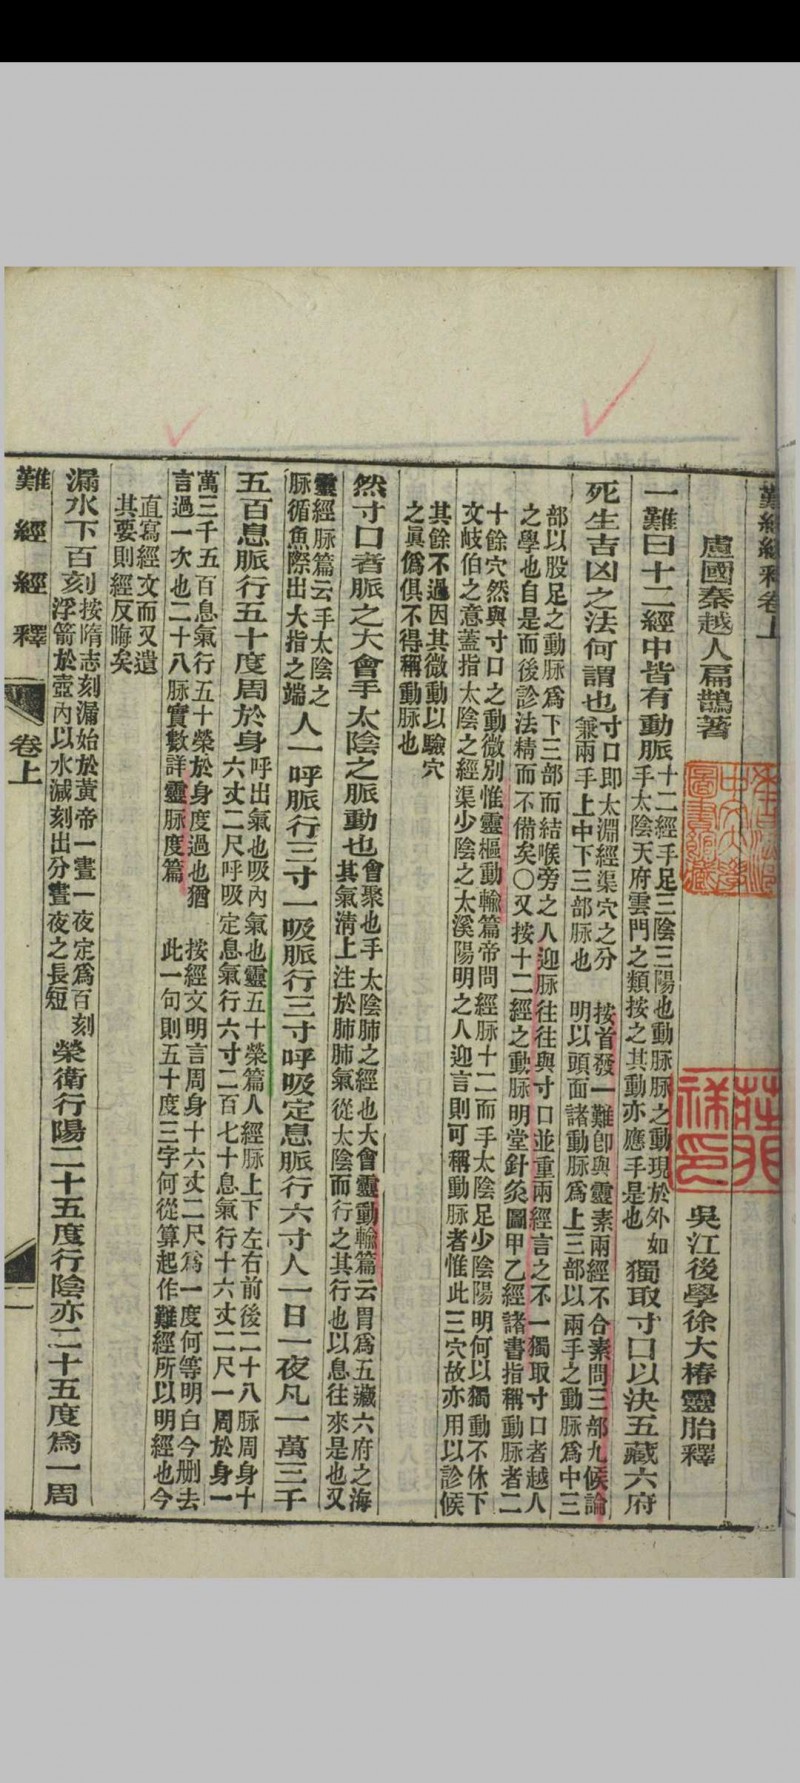 難經經釋卷上
盧國秦越人扁鵲著
吳江後學徐大椿靈胎釋
一難曰十二經中皆有動脈
十二經手足三陰三陽也動脈脈之動現於外如
手太陰天府雲門之類按之其動亦應手是也
獨取寸口以決五藏六府
死生吉凶之法何謂也
寸口即太淵經渠穴之分
兼兩手上中下三部脉也
按首發一難卽與靈素兩經不合素問三部九候論
明以頭面諸動脈爲上三部以兩手之動脈爲中三
部以股足之動脉爲下三部而結喉旁之人迎脉往往與寸口並重兩經言之不一獨取寸口者越人
之學也自是而後診法精而不備矣○又按十二經之動脉明堂針灸圖甲乙經諸書指稱動脈者二
十餘穴然與寸口之動微別惟靈樞動輸篇帝問經脈十二而手太陰足少陰陽明何以獨動不休下
文岐伯之意蓋指太陰之經渠少陰之太溪陽明之人迎言則可稱動脈者惟此三穴故亦用以診候
其餘不過因其微動以驗穴
之眞僞俱不得稱動脉也
然寸口者脈之大會手太陰之脈動也
會聚也手太陰肺之經也大會靈動輸篇云胃爲五藏六府之海
其氣淸上注於肺肺氣從太陰而行之其行也以息往來是也又
靈經脈篇云手太陰之
脉循魚際出大指之端
人一呼脈行三寸一吸脈行三寸呼吸定息脈行六寸人一日一夜凡一萬三千
五百息脈行五十度周於身
呼出氣也吸內氣也靈五十榮篇人經脈上下左右前後二十八脈周身十
六丈二尺呼吸定息氣行六寸二百七十息氣行十六丈二尺一周於身一
萬三千五百息氣行五十榮於身度過也猶
言過一次也二十八脈實數詳靈脉度篇
按經文明言周身十六丈二尺爲一度何等明白今刪去
此一句則五十度三字何從算起作難經所以明經也今
直寫經文而又遺
其要則經反晦矣
漏水下百刻
按隋志刻漏始於黃帝一晝一夜定爲百刻
浮箭於壺內以水減刻出分晝夜之長短
榮衛行陽二十五度行陰亦二十五度爲一周
難經經釋
卷上
一